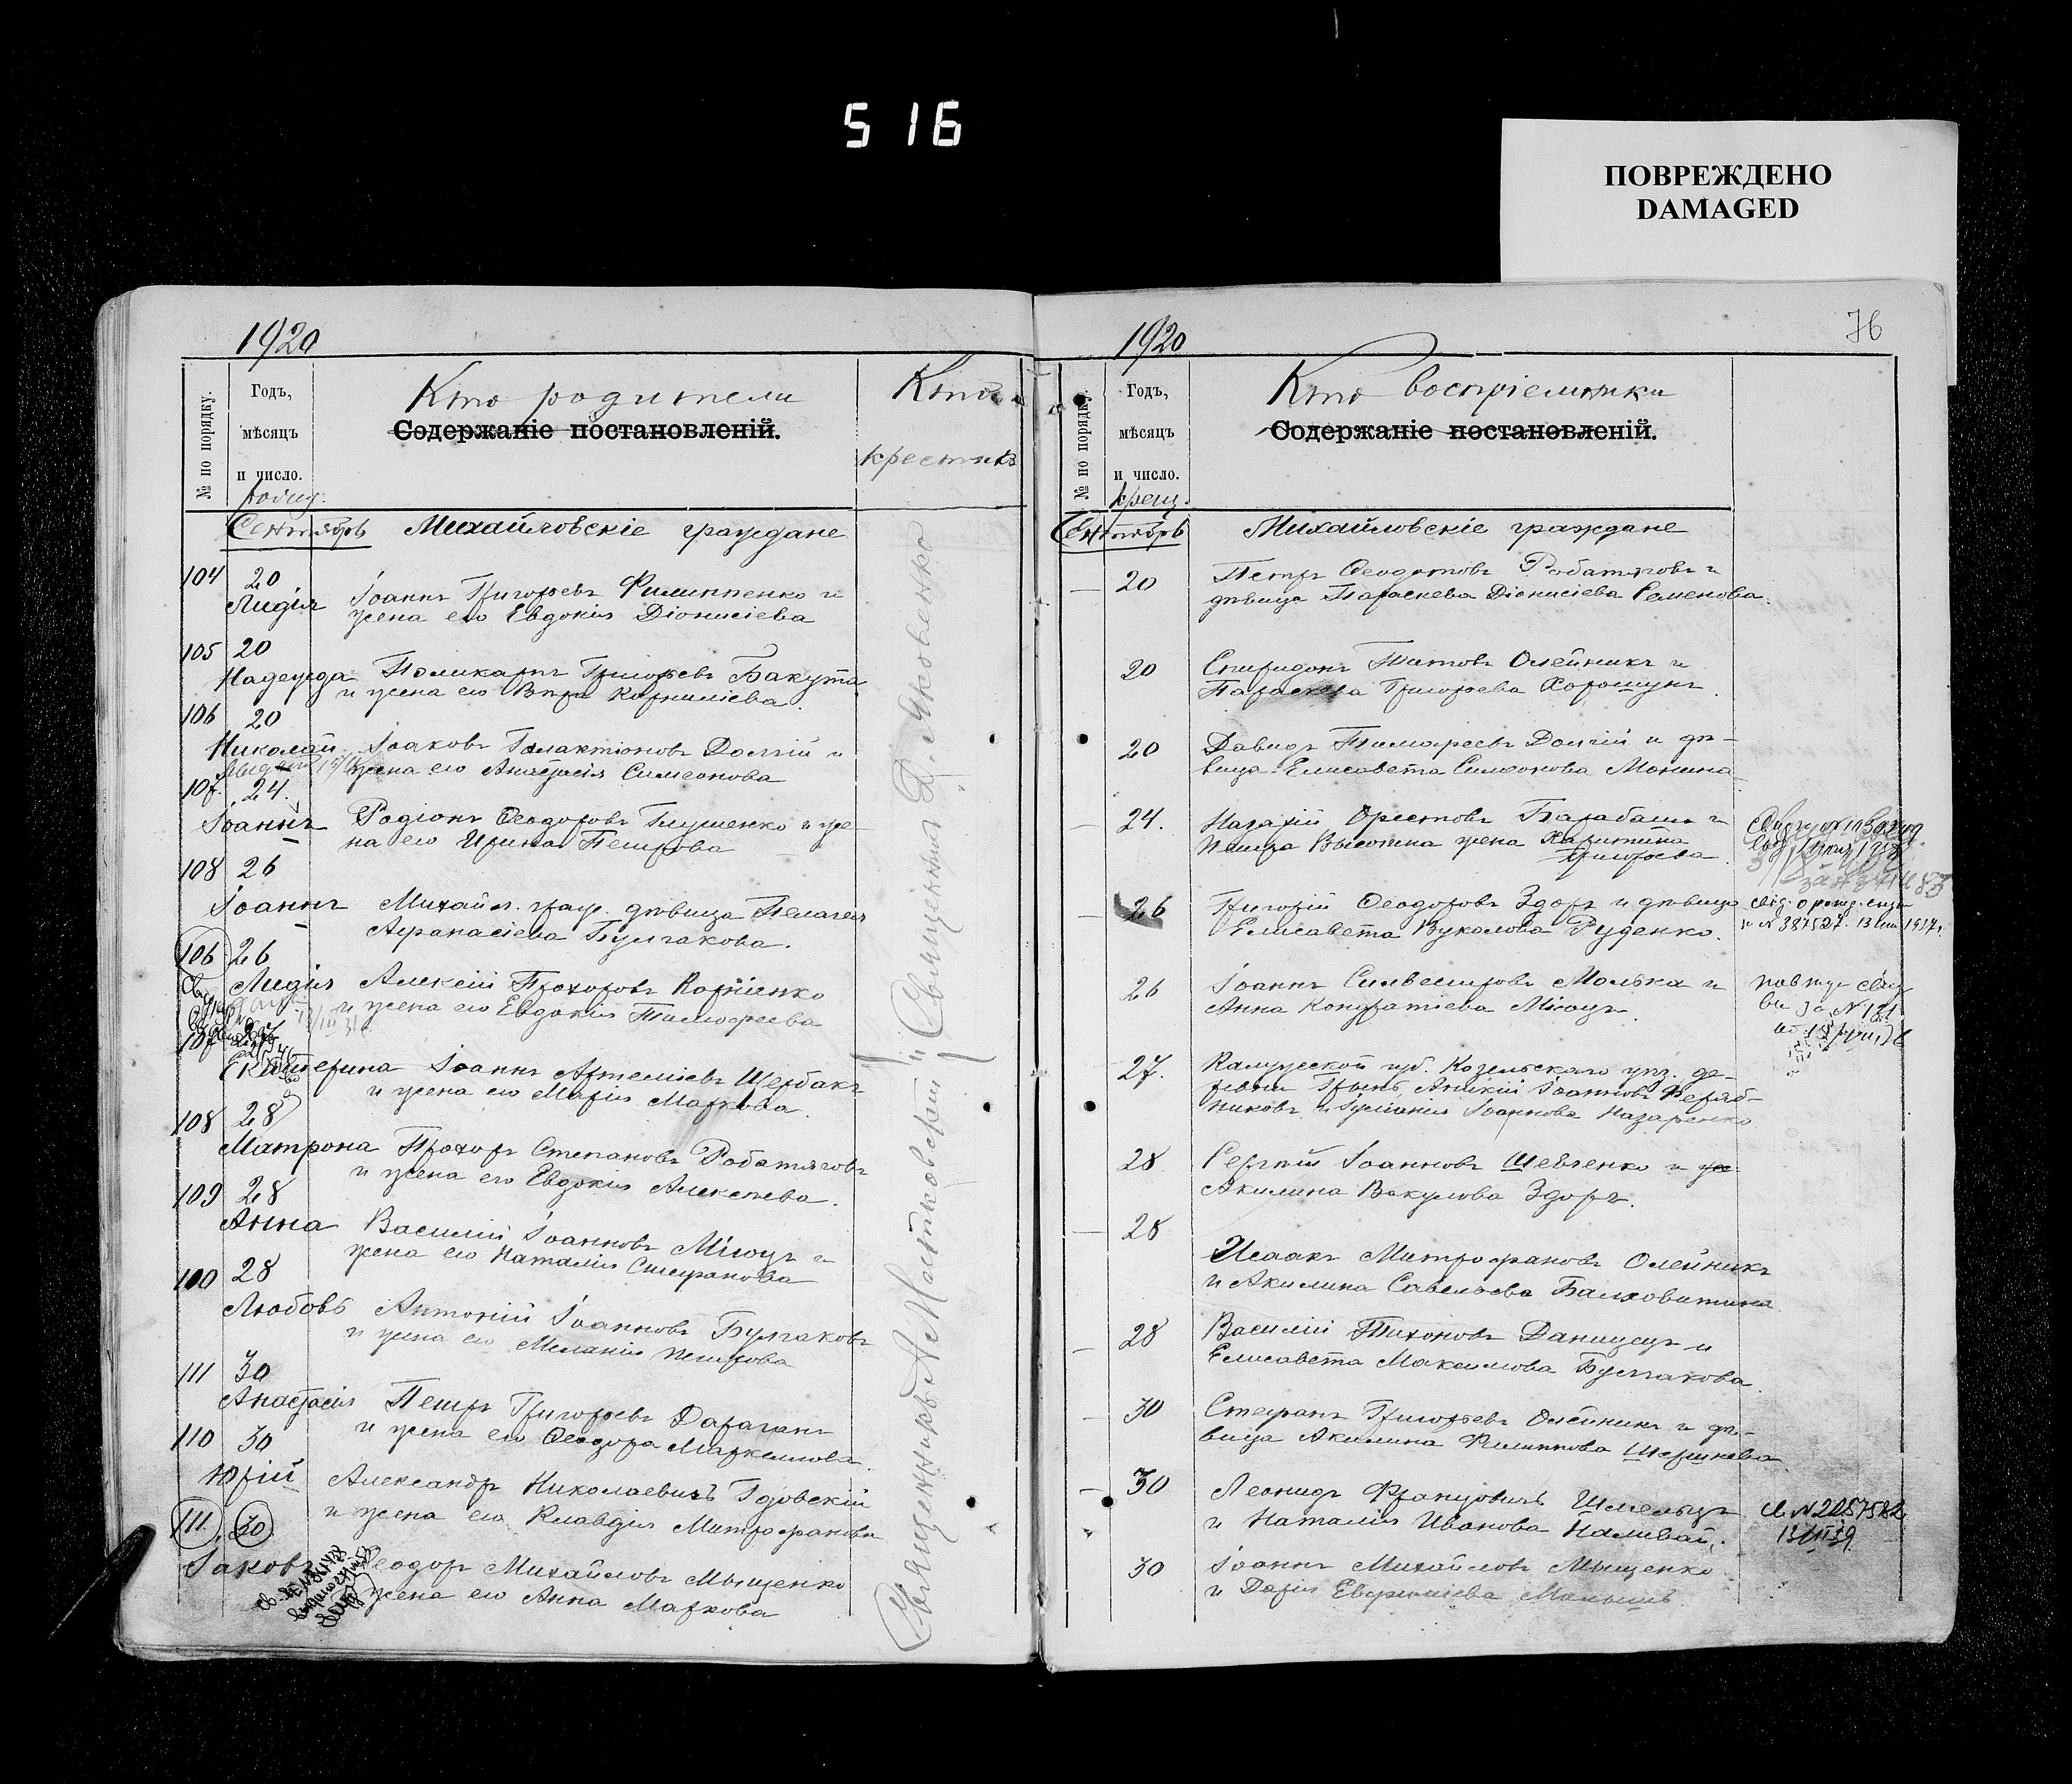 516
ПОВРЕЖДЕНО
DAMAGED
1920
№ по порядку.
Годъ,
мѣсяцъ
и число.
родид.
Кто родители
Содержаніе постановленій.
Кто
крестилъ
Сентябрь Михайловскіе граждане
104 20
Лидія Іоаннъ Григорьевъ Филиппенко и
жена его Евдокія Діонисіева
105 20
Надежда Поликарпъ Григорьевъ Бакута
и жена его Вѣра Корниліева.
106 20
Николай Іоаковъ Галактіоновъ Долгій и
жена его Анастасія Симеонова
107. 24.
Іоаннъ Родіонъ Ѳеодоровъ Глушенко и же-
на его Ирина Петрова
108 26
Іоаннъ Михайл. граж. дѣвица Пелагея
Аѳанасіева Булгакова.
106 26
Лидія Алексій Прохоровъ Корніенко
и жена его Евдокія Тимоѳеева
107
Екатерина Іоаннъ Артеміевъ Щербакъ
и жена его Марія Маркова.
108 28
Матрона Прохоръ Степановъ Работяговъ
и жена его Евдокія Алексѣева.
109 28
Анна Василій Іоанновъ Міюцъ и
жена его Наталія Стефанова
100 28
Любовь Антоній Іоанновъ Булгаковъ
и жена его Меланія Петрова
111 30
Анастасія Петръ Григорьевъ Дараганъ
и жена его Ѳеодора Маркелова.
110 30
Юрій Александръ Николаевичъ Гдовскій
и жена его Клавдія Митрофанова
111. 30
Іаковъ Ѳеодоръ Михайловъ Мыщенко
жена его Анна Маркова
Священникъ А. Мойтковскій и Священникъ Д. Яковенко
1920
76
№ по порядку.
Годъ,
мѣсяцъ
и число.
крещ.
Кто воспріемники
Содержаніе постановленій.
Сентябрь Михайловскіе граждане
20 Петръ Ѳеодотовъ Работяговъ и
дѣвица Параскева Діонисіева Семенова.
20 Спиридонъ Титовъ Олейникъ и
Параскева Григорьева Хорошунъ.
20 Давидъ Тимоѳеевъ Долгій и дѣ-
вица Елисавета Симеонова Монина
24. Назарій Орестовъ Барабашъ и
Петра Высотина жена Харитина
Григорьева.
26 Григорій Ѳеодоровъ Здоръ и дѣвица
Елисавета Вуколова Руденко.
№ 387527. 13
26 Іоаннъ Сильвестровъ Молька и
Анна Кондратіева Міюцъ.
№ 121
27. Калужской губ. Козельскаго уѣз. де-
ревни Іоанновъ
и Іуліанія Іоаннова Назаренко
28 Сергѣй Іоанновъ Шевченко и
Акилина Вакулова Здоръ.
28
Исаакъ Митрофановъ Олейникъ
и Акилина Савельева Балховитина
28 Василій Тихоновъ Данщуцъ и
Елисавета Максимова Булгакова.
30 Стефанъ Григорьевъ Олейникъ и дѣ-
вица Акилина Филиппова Шершнева.
30 Леонидъ Францовичъ Шмельцъ
и Наталія Иванова Наливай.
30 Іоаннъ Михайловъ Мыщенко
и Дарія Евфиміева Малышъ